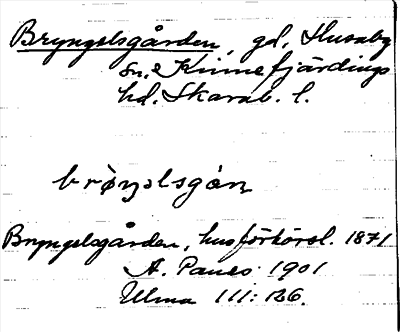 Bryngelsgården, gd, Husaby
sn, Kinnefjärdings
hd. Skarab. l.
bròŋəlsgán
Bryngelsgården, husförhörsl. 1871
A. Panes 1901
Ulma 111:126.